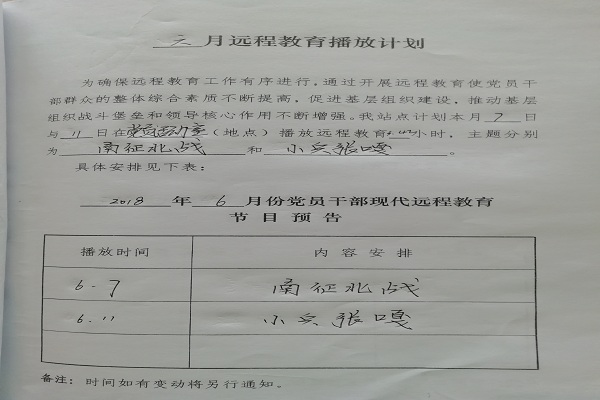 六月远程教育播放计划
为确保远程教育工作有序进行,通过开展远程教育使党员干
部群众的整体综合素质不断提高,促进基层组织建设,推动基层
组织战斗堡垒和领导核心作用不断增强。我站点计划本月7日
与11日在党员活动室(地点)播放远程教育小时,主题分别
为南征北战和小兵张嘎。
具体安排见下表:
2018年6月份党员干部现代远程教育
节目预告
播放时间 内容安排
6.7 南征北战
6.11 小兵张嘎
备注:时间如有变动将另行通知。